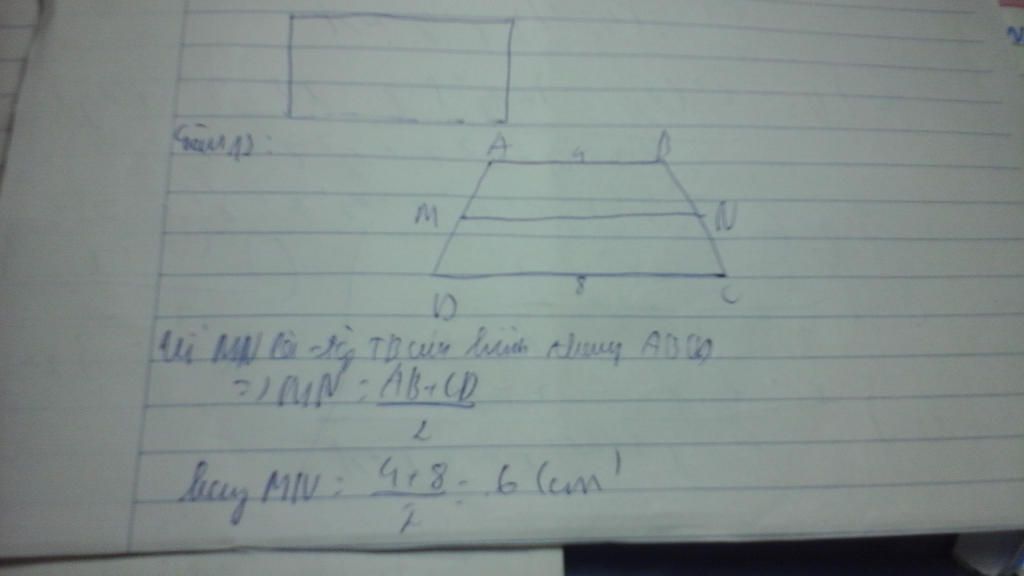 A 4 B
M N
D 8 C
Vì MN là đg TB của hình thang ABCD
=> MN = AB+CD / 2
hay MN = 4+8 / 2 = 6 (cm)